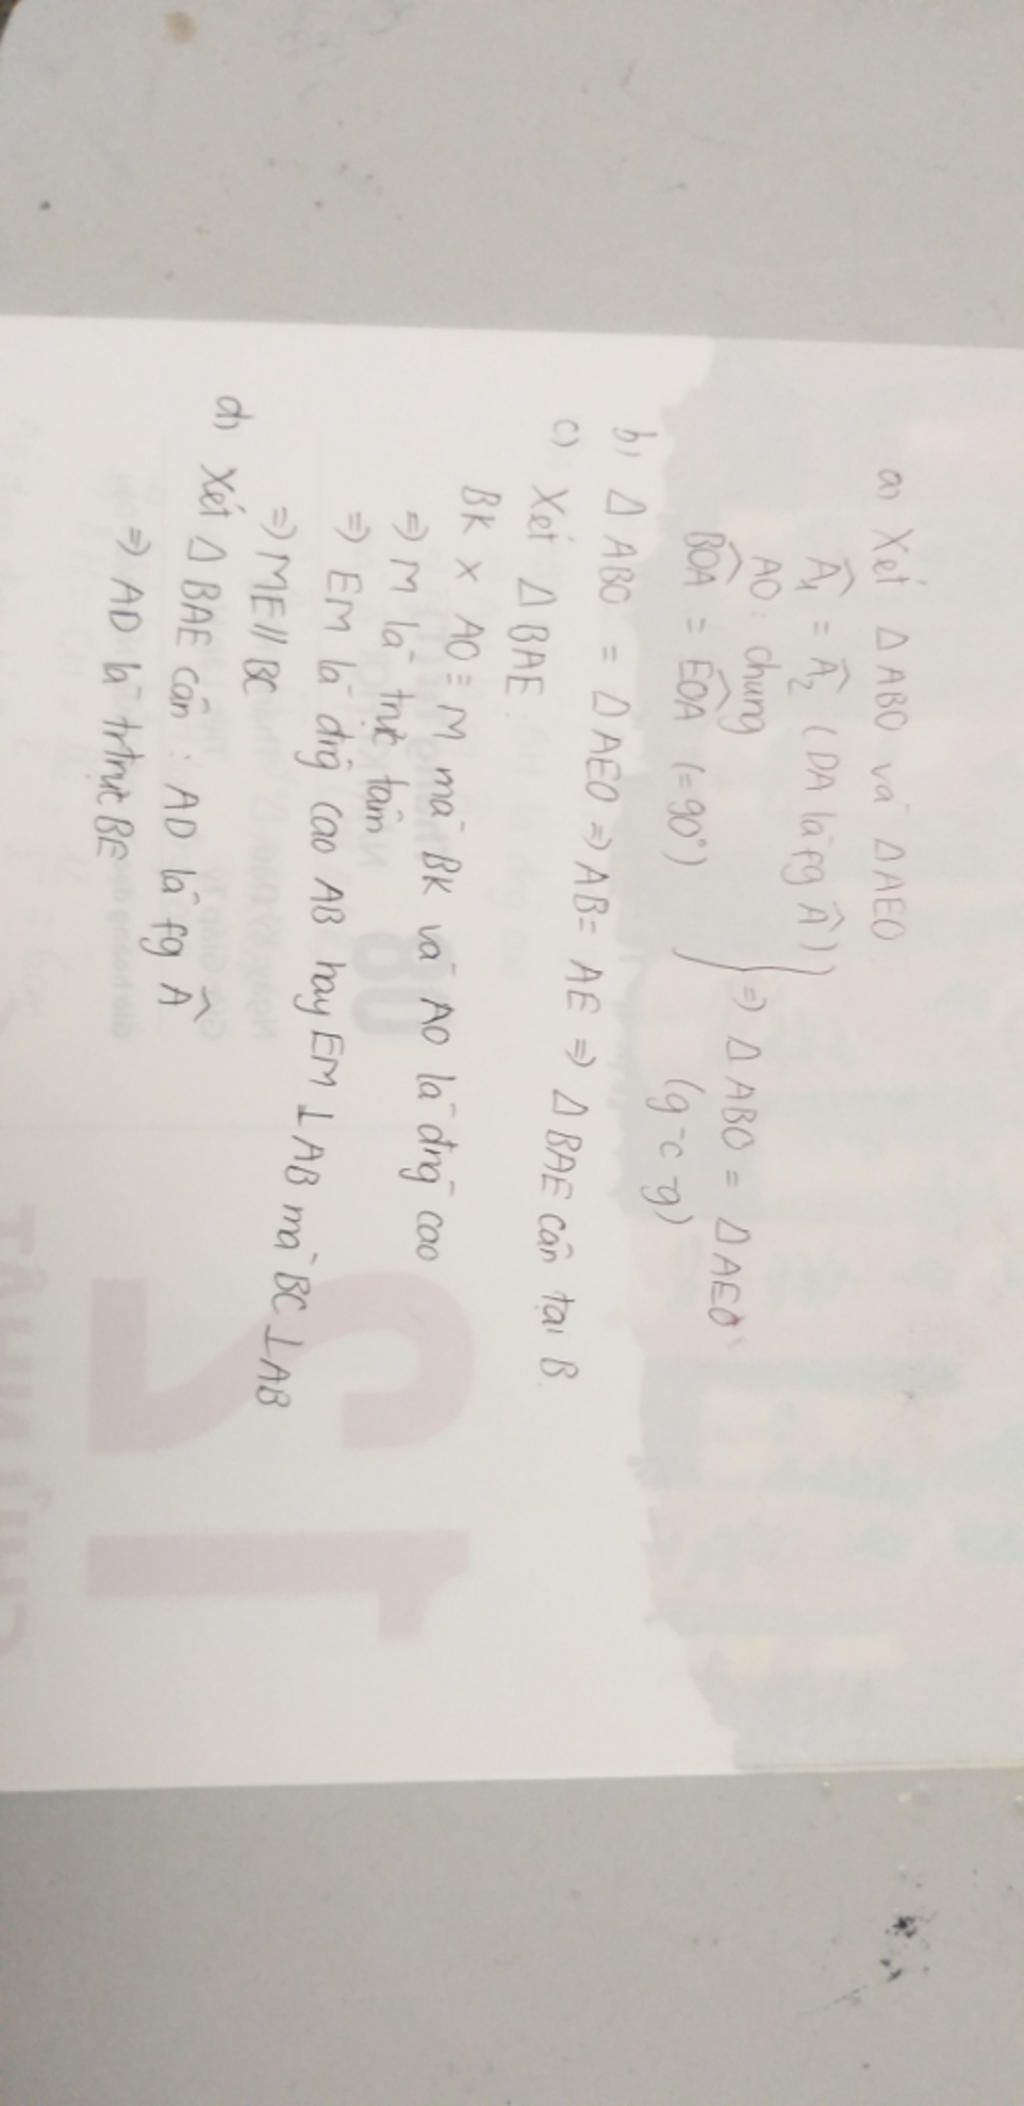 a) Xét Δ ABO và Δ AEO
Â₁ = Â₂ (DA là fg Â)
AO: chung
BOA = EOA (= 90°)
=> Δ ABO = Δ AEO
(g-c-g)
b) Δ ABO = Δ AEO => AB = AE => Δ BAE cân tại B.
c) Xét Δ BAE:
BK x AO ≡ M mà BK và AO là đng cao
=> M là trực tâm
=> EM là đng cao AB hay EM ⊥ AB mà BC ⊥ AB
=> ME // BC
d) Xét Δ BAE cân: AD là fg Â
=> AD là trtrực BE